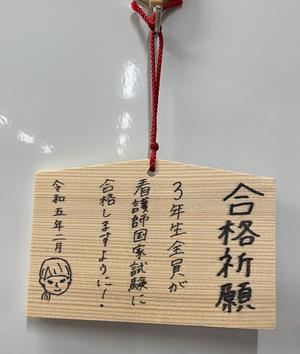 合格祈願
3年生全員が
看護師国家試験に
合格しますように!
令和五年一月